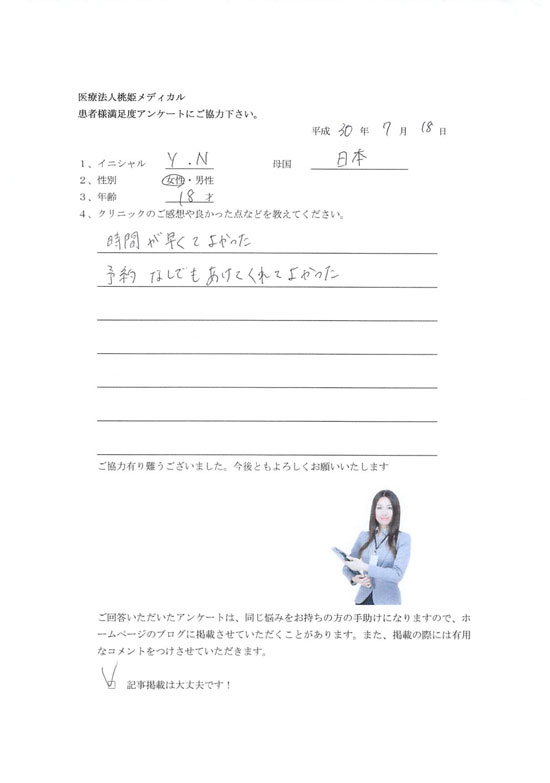 医療法人桃姫メディカル
患者様満足度アンケートにご協力下さい。
平成 30 年 7 月 18 日
1、イニシャル Y.N 母国 日本
2、性別 女性・男性
3、年齢 18 才
4、クリニックのご感想や良かった点などを教えてください。
時間が早くてよかった
予約なしでもあけてくれてよかった
ご協力有り難うございました。今後ともよろしくお願いいたします
ご回答いただいたアンケートは、同じ悩みをお持ちの方の手助けになりますので、ホ
ームページのブログに掲載させていただくことがあります。また、掲載の際には有用
なコメントをつけさせていただきます。
☑ 記事掲載は大丈夫です！